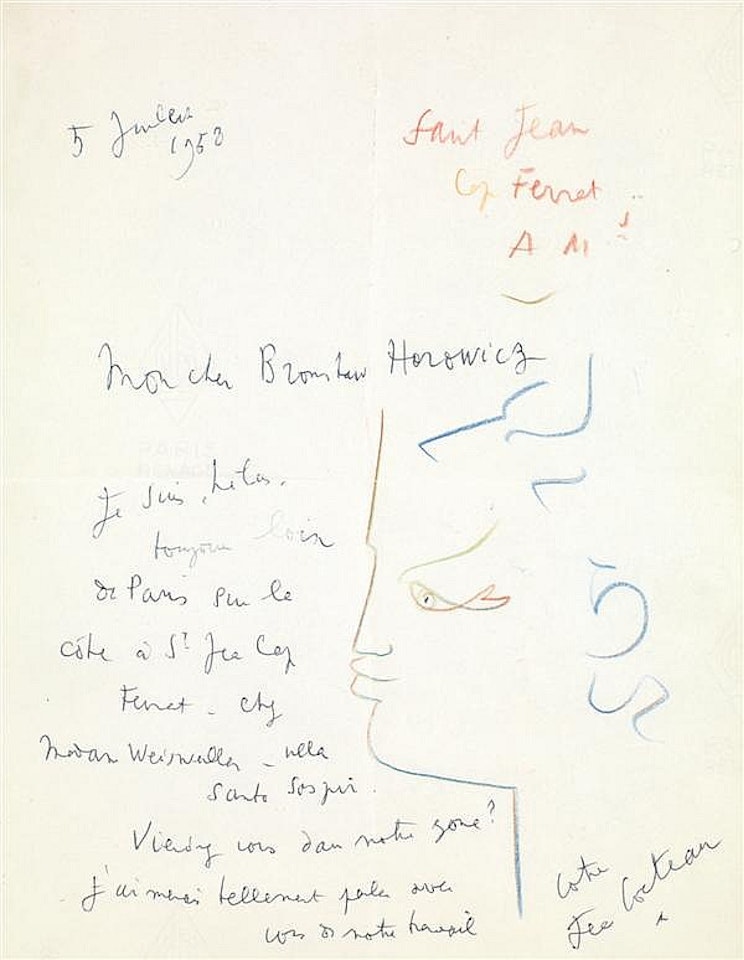 5 Juillet
1958
Saint Jean
Cap Ferrat
A M
Mon cher Bronislaw Horowicz
Je suis, hélas,
toujours loin
de Paris sur la
côte à St Jea Cap
Ferrat - chez
Madame Weisweiller - villa
Santo Sospir.
Viendrez vous dans notre zone?
J'aimerais tellement parler avec
vous de notre travail
votre
Jean Cocteau